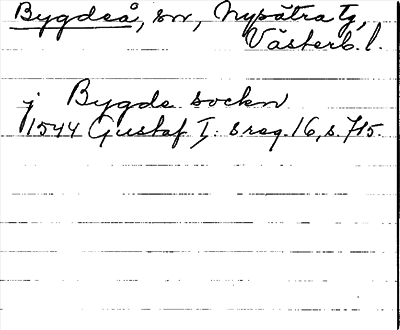 Bygdeå, sn, Nysätra tg,
Västerb. l.
j Bygde sockn
1544 Gustaf I:s reg. 16, s. 715.